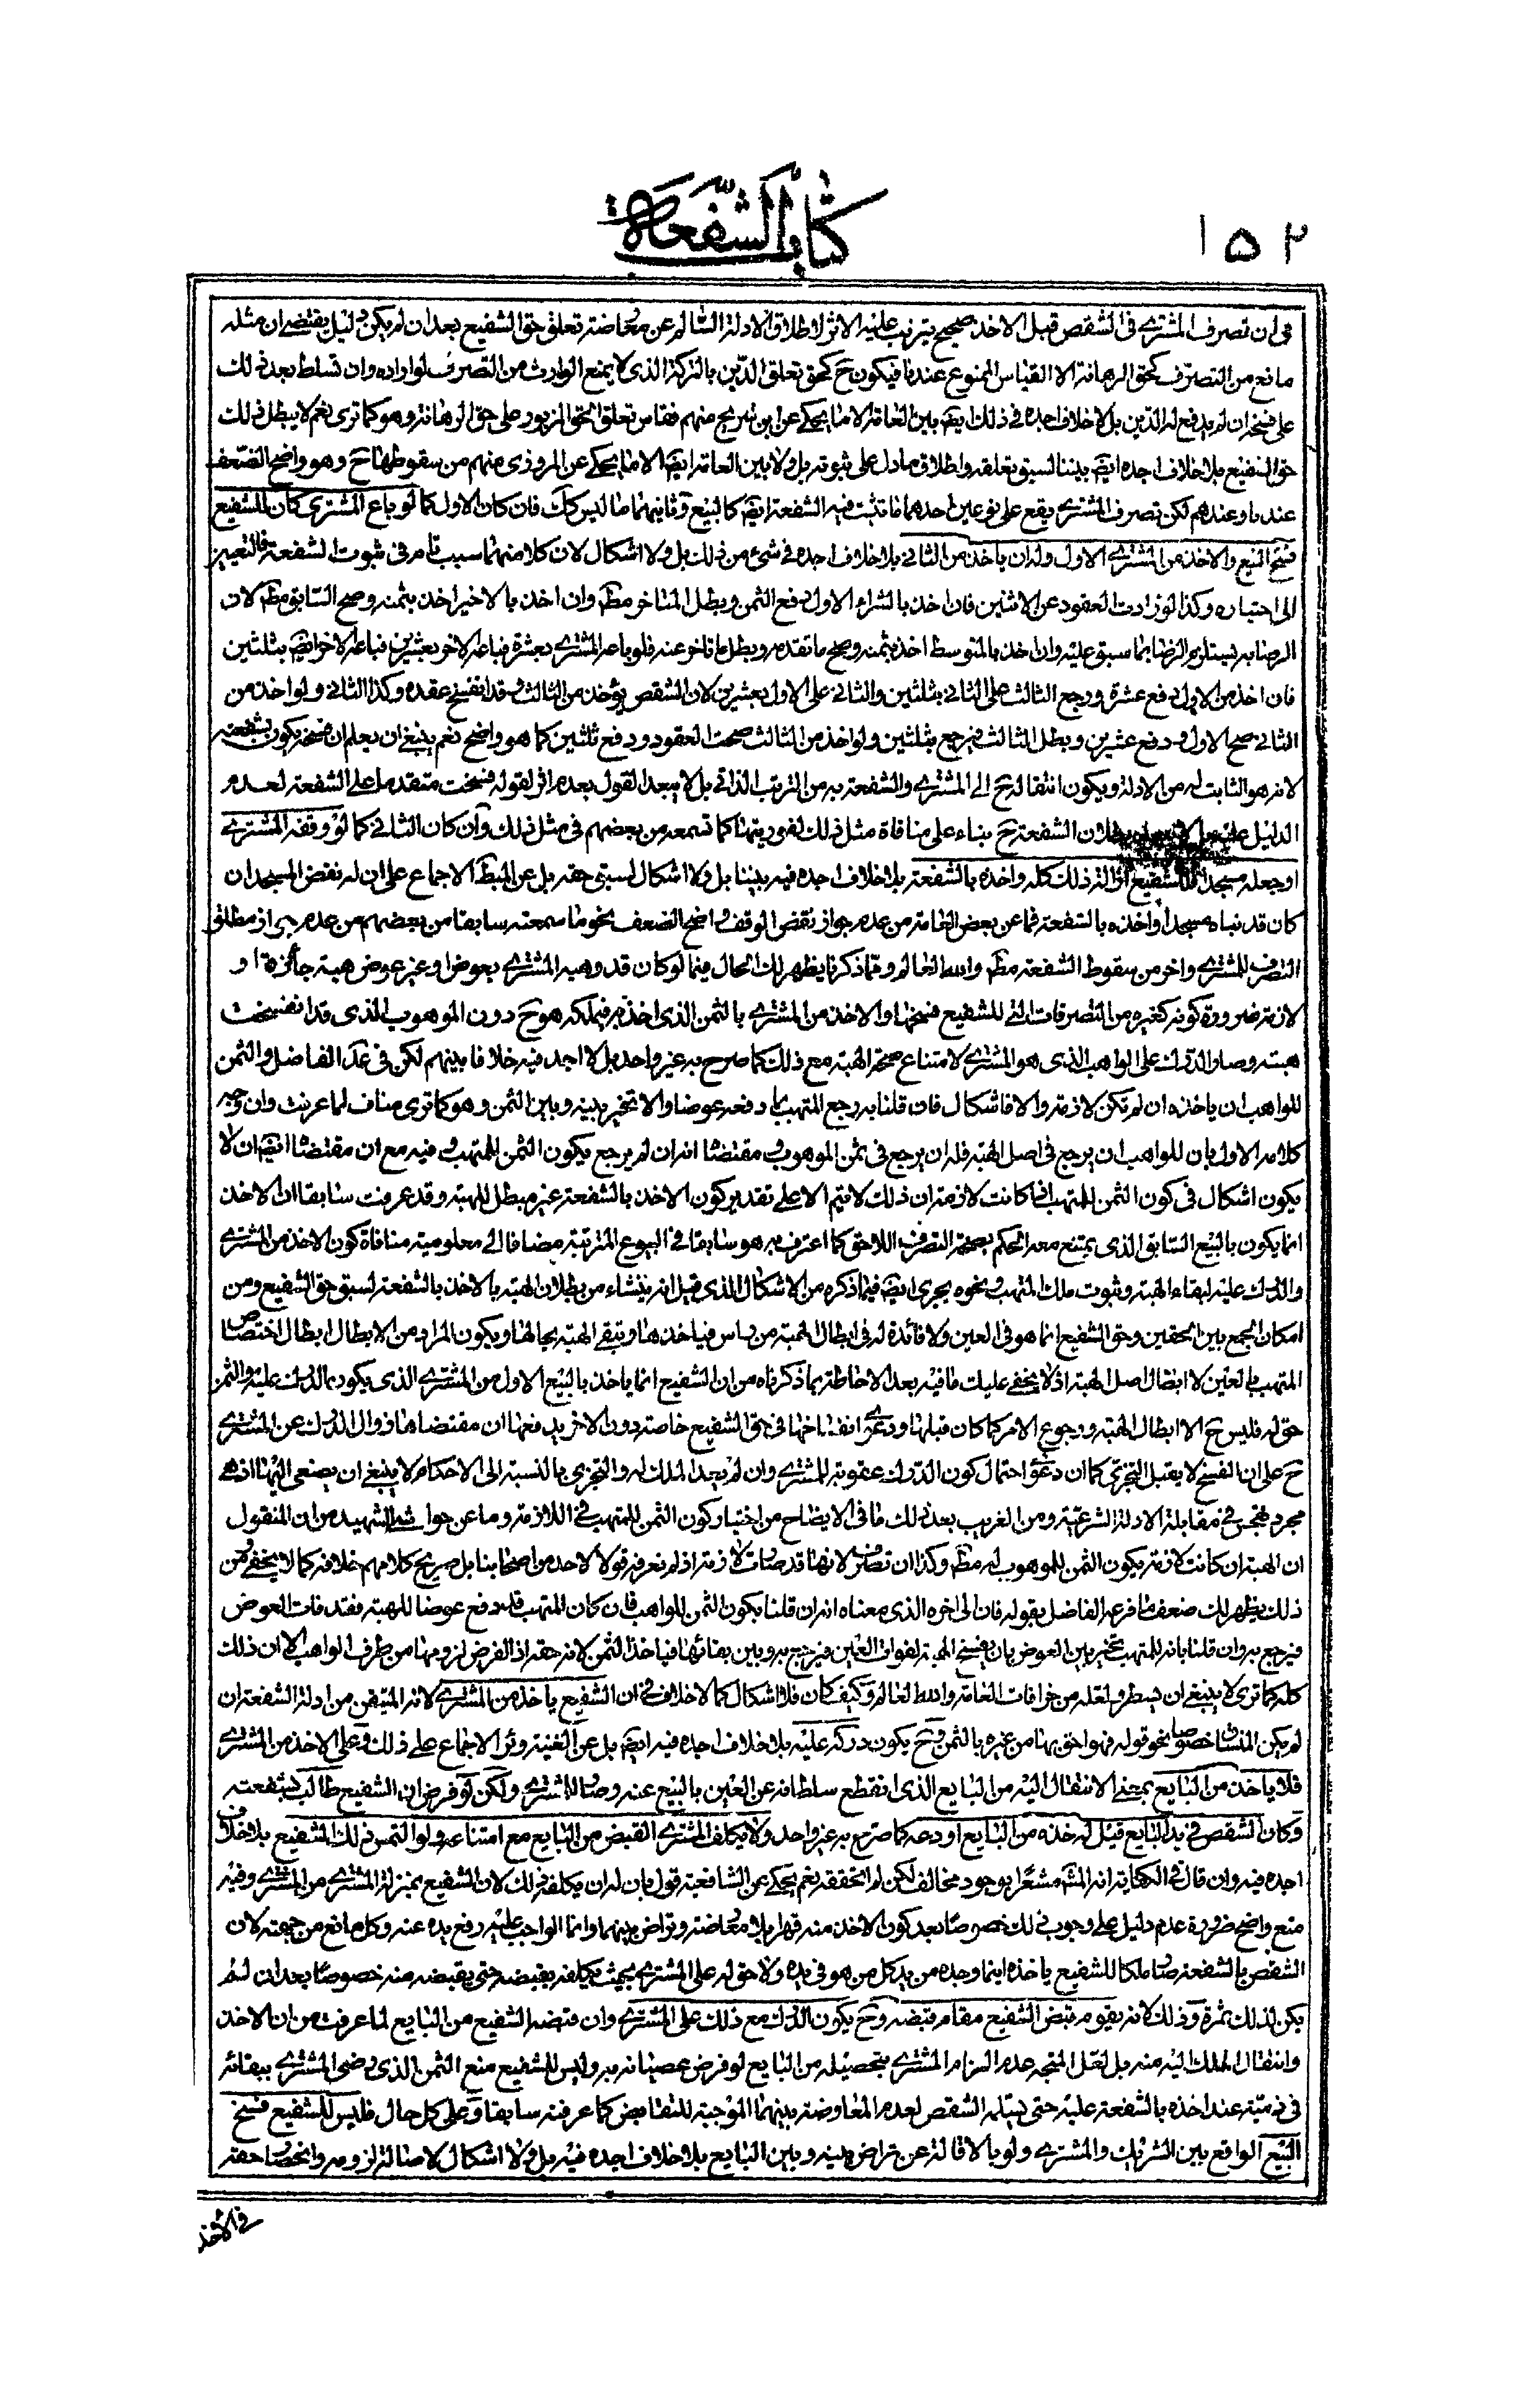 ١٥٢
كتاب الشفعة
في ان تصرف المشتري في الشقص قبل الاخذ صحيح يترتب عليه الاثر لاطلاق الادلة السالم عن معارضة تعلق حق الشفيع بعد ان لم يكن دليل يقتضي ان مثله
مانع من التصرف كحق الرهانة الا القياس الممنوع عندنا فيكون ح كحق تعلق الدين بالتركة الذي لا يمنع الوارث من التصرف لو اراده وان تسلط بعد ذلك
على فسخه ان لم يدفع له الدين بل لا خلاف اجده في ذلك ايضا بين العامة الا ما يحكى عن ابن سريج منهم فقاس تعلق الحق المزبور على حق الرهانة وهو كما ترى نعم لا يبطل ذلك
حق الشفيع بلا خلاف اجده ايضا بيننا لسبق تعلقه واطلاق ما دل على ثبوته بل ولا بين العامة ايضا الا ما يحكى عن المروزي منهم من سقوطها ح وهو واضح الضعف
عندنا وعندهم لكن تصرف المشتري يقع على نوعين احدهما ما تثبت فيه الشفعة ايضا كالبيع وثانيهما ما ليس كك فان كان الاول كما لو باع المشتري كان للشفيع
فسخ البيع والاخذ من المشتري الاول وله ان ياخذ من الثاني بلا خلاف اجده في شيء من ذلك بل ولا اشكال لان كلا منهما سبب تام في ثبوت الشفعة فالتعيين
الى اختياره وكذا لو زادت العقود عن الاثنين فان اخذ بالشراء الاول دفع الثمن وبطل المتاخر مط وان اخذ بالاخير اخذ بثمنه وصح السابق مط لان
الرضا به يستلزم الرضا بما سبق عليه وان اخذ بالمتوسط اخذ بثمنه وصح ما تقدمه وبطل ما تاخر عنه فلو باعه المشتري بعشرة فباعه الاخر بعشرين فباعه الاخر ايضا بثلثين
فان اخذ من الاول دفع عشرة ورجع الثالث على الثاني بثلثين والثاني على الاول بعشرين لان الشقص يؤخذ من الثالث وقد انفسخ عقده وكذا الثاني ولو اخذ من
الثاني صح الاول ودفع عشرين وبطل الثالث فيرجع بثلثين ولو اخذ من الثالث صحت العقود ودفع ثلثين كما هو واضح نعم ينبغي ان يعلم ان فسخه يكون بشفعته
لانه هو الثابت له من الادلة ويكون انتقاله ح الى المشتري والشفعة به من الترتب الذاتي بل لا يبعد القول بعدم اثر لقوله فسخت متقدما على الشفعة لعدم
الدليل عليه بل بطلان الشفعة ح بناء على منافاة مثل ذلك لفوريتها كما تسمعه من بعضهم في مثل ذلك وان كان الثاني كما لو وقفه المشتري
او جعله مسجدا فللشفيع ازالة ذلك كله واخذه بالشفعة بلا خلاف اجده فيه بيننا بل ولا اشكال لسبق حقه بل عن المبسوط الاجماع على ان له نقض المسجد ان
كان قد بناه مسجدا واخذه بالشفعة فما عن بعض العامة من عدم جواز نقض الوقف واضح الضعف نحو ما سمعته سابقا من بعضهم من عدم جواز مطلق
التصرف للمشتري واخر من سقوط الشفعة مط والله العالم ومما ذكرنا يظهر لك الحال فيما لو كان قد وهبه المشتري بعوض او غير عوض هبة جائزة او
لازمة ضرورة كونه كغيره من التصرفات التي للشفيع فسخها والاخذ من المشتري بالثمن الذي اخذ به فيملكه هو ح دون الموهوب الذي قد انفسخت
هبته وصار الدرك على الواهب الذي هو المشتري لامتناع صحة الهبة مع ذلك كما صرح به غير واحد بل لا اجد فيه خلافا بينهم لكن في عد الفاضل والثمن
للواهب ان ياخذه ان لم تكن لازمة والا فاشكال فان قلنا به رجع المتهب بما دفعه عوضا والا تخير بينه وبين الثمن وهو كما ترى مناف لما عرفت وان وجه
كلامه الاول بان للواهب ان يرجع في اصل الهبة فله ان يرجع في ثمن الموهوب ومقتضاه انه ان لم يرجع يكون الثمن للمتهب وفيه مع ان مقتضاه ايضا ان لا
يكون اشكال في كون الثمن للمتهب اذا كانت لازمة ان ذلك لا يتم الا على تقدير كون الاخذ بالشفعة غير مبطل للهبة وقد عرفت سابقا ان الاخذ
انما يكون بالبيع السابق الذي يمتنع معه الحكم بصحة التصرف اللاحق كما اعترف به هو سابقا في البيوع المترتبة مضافا الى معلومية منافاة كون الاخذ من المشتري
والدرك عليه لبقاء الهبة وثبوت ملك المتهب ونحوه يجري ايضا فيما ذكره من الاشكال الذي قيل انه ينشاء من بطلان الهبة بالاخذ بالشفعة لسبق حق الشفيع ومن
امكان الجمع بين الحقين وحق الشفيع انما هو في العين ولا فائدة له في ابطال الهبة من راس فياخذها وتبقى الهبة بحالها ويكون المراد من الابطال ابطال اختصاص
المتهب بالعين لا ابطال اصل الهبة اذ لا يخفى عليك ما فيه بعد الاحاطة بما ذكرناه من ان الشفيع انما ياخذ بالبيع الاول من المشتري الذي يكون الدرك عليه والثمن
حق له فليس ح الا ابطال الهبة ورجوع الامر كما كان قبلها ودعوى انفساخها في حق الشفيع خاصة دون الاخر يدفعها ان مقتضاها زوال الدرك عن المشتري
ح على ان الفسخ لا يقبل التجزي كما ان دعوى احتمال كون الدرك عقوبة للمشتري وان لم يعد الملك له والتجزي بالنسبة الى الاحكام لا ينبغي ان يصغى اليها اذ هي
مجرد تهجس في مقابلة الادلة الشرعية ومن الغريب بعد ذلك ما في الايضاح من اختيار كون الثمن للمتهب في اللازمة وما عن حواشي الشهيد من ان المنقول
ان الهبة ان كانت لازمة يكون الثمن للموهوب له مط وكذا ان تصرف لانها قد صارت لازمة اذ لم نعرفه قولا لاحد من اصحابنا بل صريح كلامهم خلافه كما لا يخفى ومن
ذلك يظهر لك ضعف ما فرعه الفاضل بقوله فان الى اخره الذي معناه انه ان قلنا بكون الثمن للواهب فان كان المتهب قد دفع عوضا للهبة فقد فات العوض
فيرجع به وان قلنا بانه للمتهب تخير بين العوض بان يفسخ الهبة لفوات العين فيرجع به وبين بقائها فياخذ الثمن لانه حقه اذ الفرض لزومها من طرف الواهب الا ان ذلك
كله كما ترى لا ينبغي ان يسطر ولعله من خرافات العامة والله العالم وكيف كان فلا اشكال كما لا خلاف في ان الشفيع ياخذ من المشتري لانه المتيقن من ادلة الشفعة ان
لم يكن المنساق خصوصا نحو قوله فهو احق بها من غيره بالثمن وح يكون دركه عليه بلا خلاف اجده فيه ايضا بل عن الغنية وئر الاجماع على ذلك وعلى الاخذ من المشتري
فلا ياخذ من البايع بمعنى الانتقال اليه من البايع الذي انقطع سلطانه عن العين بالبيع عنه وصار للمشتري ولكن لو فرض ان الشفيع طالب بشفعته
وكان الشقص في يد البايع قيل له خذه من البايع او دعه كما صرح به غير واحد ولا يكلف المشتري القبض من البايع مع امتناعه ولو التمس ذلك الشفيع بلا خلاف
اجده فيه وان قال في الكفاية انه المشهور مشعرا بوجود مخالف لكن لم اتحققه نعم يحكى عن الشافعية قول بان له ان يكلفه ذلك لان الشفيع بمنزلة المشتري من المشتري وفيه
منع واضح ضرورة عدم دليل على وجوب ذلك خصوصا بعد كون الاخذ منه قهرا بلا معاوضة وتراض بينهما وانما الواجب عليه رفع يده عنه وكل مانع من جهته لان
الشقص بالشفعة صار ملكا للشفيع ياخذه اينما وجده من يد كل من هو في يده ولا حق له على المشتري بحيث يكلفه بقبضه حتى يقبضه منه خصوصا بعد ان لم
يكن لذلك ثمرة وذلك لانه يقوم قبض الشفيع مقام قبضه وح يكون الدرك مع ذلك على المشتري وان قبضه الشفيع من البايع لما عرفت من ان الاخذ
وانتقال الملك اليه منه بل لعل المتجه عدم الزام المشتري بتحصيله من البايع لو فرض عصيانه به وليس للشفيع منع الثمن الذي رضي المشتري ببقائه
في ذمته عند اخذه بالشفعة عليه حتى يتسلم الشقص لعدم المعاوضة بينهما الموجبة للتقابض كما عرفته سابقا وعلى كل حال فليس للشفيع فسخ
البيع الواقع بين الشريك والمشتري ولو بالاقالة عن تراض بينه وبين البايع بلا خلاف اجده فيه بل ولا اشكال لاصالة لزومه وانحصار حقه
في الاخذ